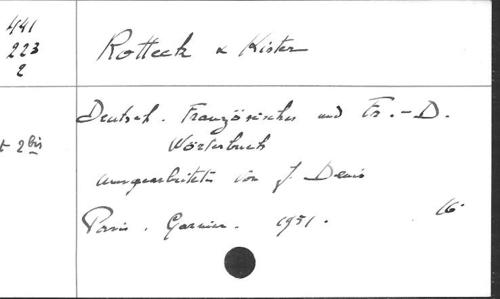 441
223
2
Rotteck & Kister
Deutsch. Französisches und Fr. - D.
Wörterbuch
t 2 bis
umgearbeitete von J. Denis
Paris. Garnier. 1951. 16